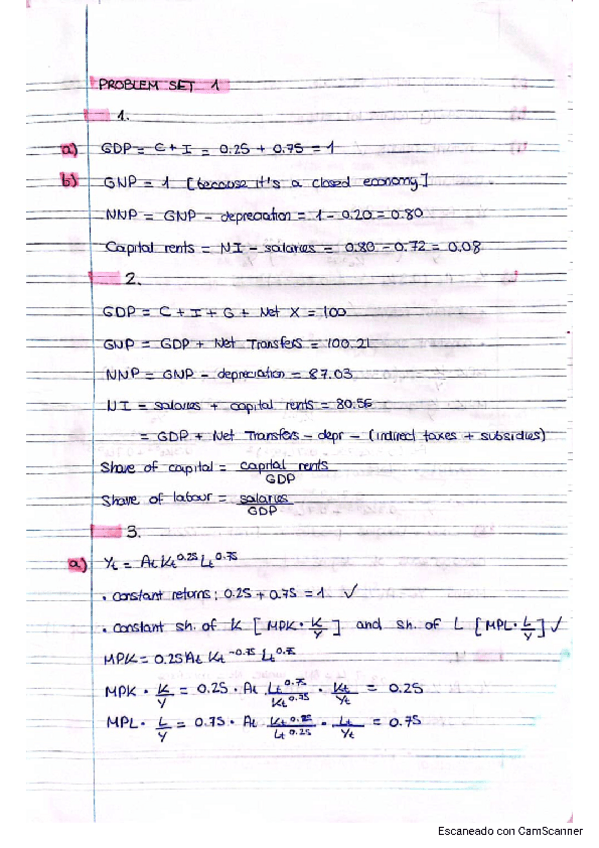 PROBLEM SET 1
1.
a) GDP = C + I = 0.25 + 0.75 = 1
b) GNP = 1 [because it's a closed economy]
NNP = GNP - depreciation = 1 - 0.20 = 0.80
Capital rents = NI - salaries = 0.80 - 0.72 = 0.08
2.
GDP = C + I + G + Net X = 100
GNP = GDP + Net Transfers = 100.21
NNP = GNP - depreciation = 87.03
NI = salaries + capital rents = 80.56
= GDP + Net Transfers - depr - (indirect taxes + subsidies)
Share of capital = capital rents / GDP
Share of labour = salaries / GDP
3.
a) Yt = At Kt^0.25 Lt^0.75
· constant returns: 0.25 + 0.75 = 1 ✓
· constant sh. of K [MPK · K/Y] and sh. of L [MPL · L/Y] ✓
MPK = 0.25 At Kt^-0.75 Lt^0.75
MPK · K/Y = 0.25 · At Lt^0.75/Kt^0.75 · Kt/Yt = 0.25
MPL · L/Y = 0.75 · At Kt^0.25/Lt^0.25 · Lt/Yt = 0.75
Escaneado con CamScanner